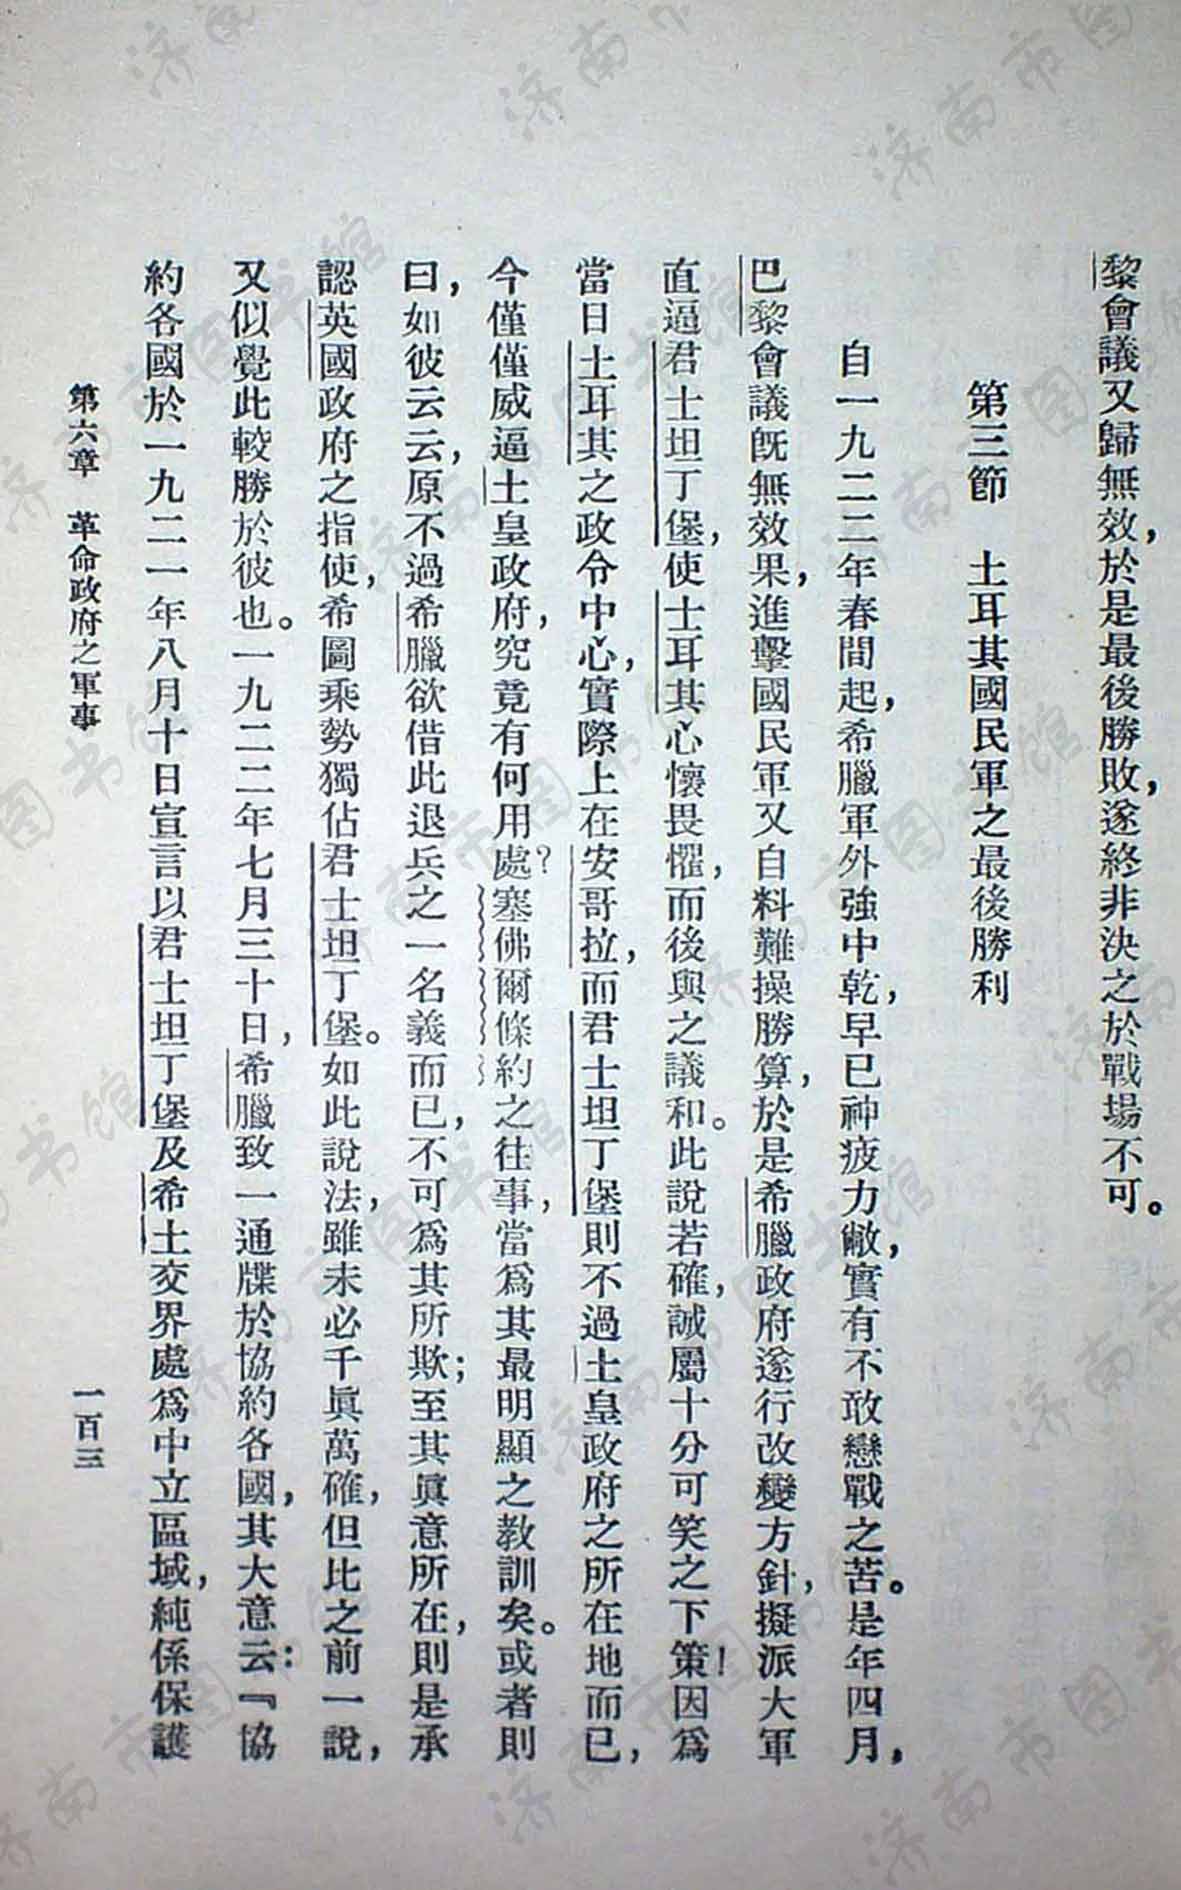 黎會議又歸無效，於是最後勝敗，遂終非決之於戰場不可。
第三節　土耳其國民軍之最後勝利
自一九二二年春間起，希臘軍外強中乾，早已神疲力敝，實有不敢戀戰之苦。是年四月，
巴黎會議既無效果，進擊國民軍又自料難操勝算，於是希臘政府遂行改變方針，擬派大軍
直逼君士坦丁堡，使土耳其心懷畏懼，而後與之議和。此說若確，誠屬十分可笑之下策！因爲
當日土耳其之政令中心，實際上在安哥拉，而君士坦丁堡則不過土皇政府之所在地而已，
今僅僅威逼土皇政府，究竟有何用處？塞佛爾條約之往事，當爲其最明顯之教訓矣。或者則
曰，如彼云云，原不過希臘欲借此退兵之一名義而已，不可爲其所欺；至其眞意所在，則是承
認英國政府之指使，希圖乘勢獨佔君士坦丁堡。如此說法，雖未必千眞萬確，但比之前一說，
又似覺此較勝於彼也。一九二二年七月三十日，希臘致一通牒於協約各國，其大意云：『協
約各國於一九二一年八月十日宣言以君士坦丁堡及希土交界處爲中立區域，純係保護
第六章　革命政府之軍事　一百三
济南市图书馆